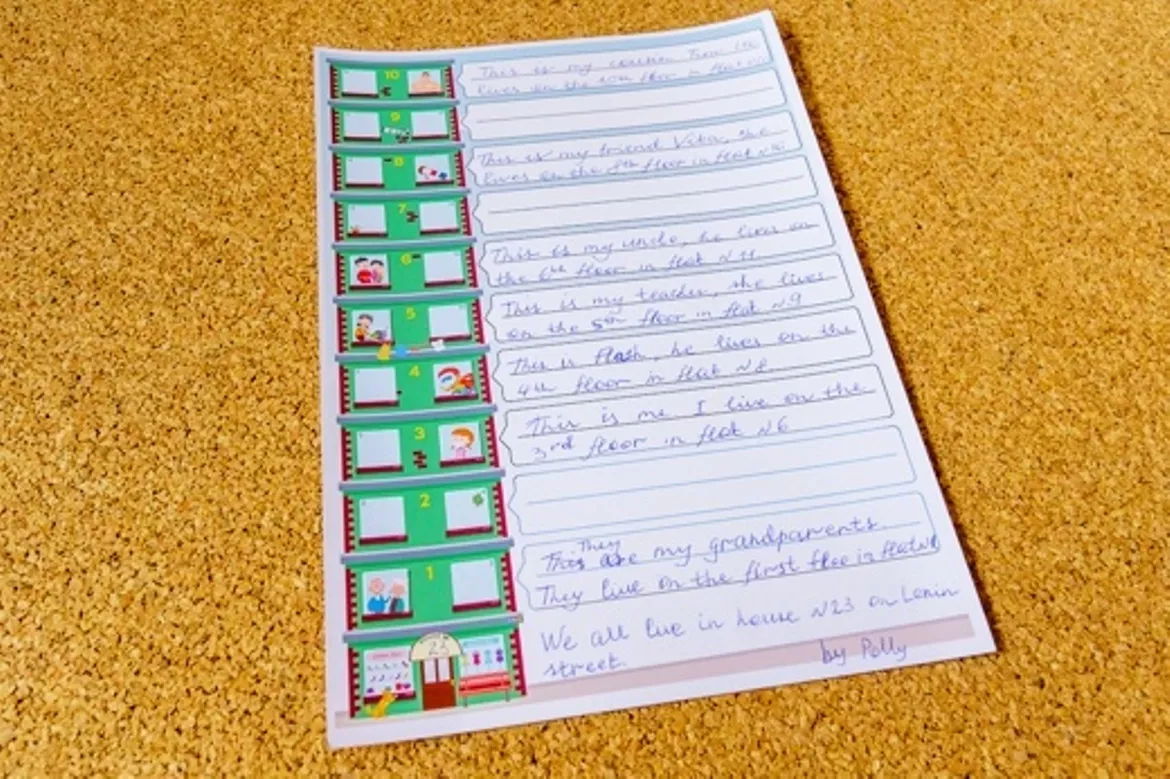 10
This is my cousin Tom he
lives on the 10th floor in flat
9
8
This is my friend Vika, she
lives on the 8th floor in flat N
7
6
This is my uncle, he lives on
the 6th floor in flat N 11.
5
This is my teacher, she lives
on the 5th floor in flat N 9
4
This is Flash, he lives on the
4th floor in flat N 8.
3
This is me. I live on the
3rd floor in flat N 6
2
1
They
This are my grandparents.
They live on the first floo in flat N1
23
We all live in house N23 on Lenin
street.
by Polly